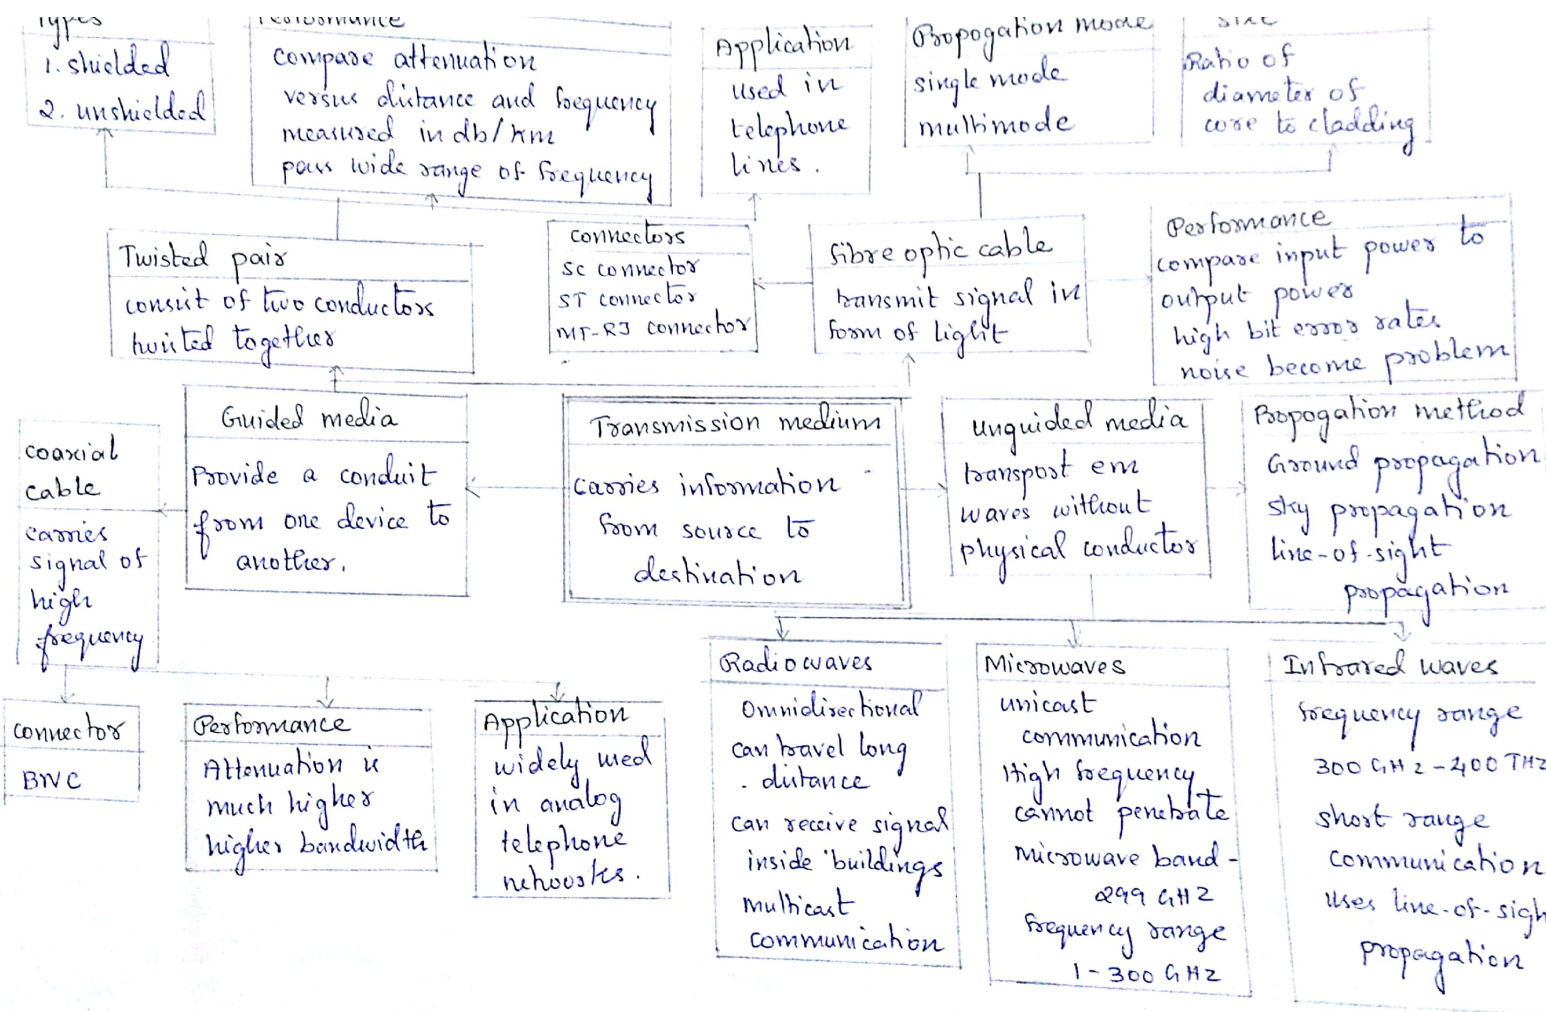 Types
1. shielded
2. unshielded
Performance
compare attenuation
versus distance and frequency
measured in db/km
pass wide range of frequency
Application
used in
telephone
lines.
Propogation mode
single mode
multimode
size
Ratio of
diameter of
core to cladding
Twisted pair
consist of two conductors
twisted together
connectors
SC connector
ST connector
MT-RJ connector
fibre optic cable
transmit signal in
form of light
Performance
compare input power to
output power
high bit error rates
noise become problem
coaxial
cable
carries
signal of
high
frequency
Guided media
Provide a conduit
from one device to
another.
Transmission medium
carries information
from source to
destination
unguided media
transport em
waves without
physical conductor
Propogation method
Ground propagation
sky propagation
line-of-sight
propagation
connector
BNC
Performance
Attenuation is
much higher
higher bandwidth
Application
widely used
in analog
telephone
networks.
Radiowaves
Omnidirectional
can travel long
distance
can receive signal
inside buildings
multicast
communication
Microwaves
unicast
communication
High frequency
cannot penetrate
Microwave band-
299 GHz
frequency range
1-300 GHz
Infrared waves
frequency range
300 GHz-400 THz
short range
communication
uses line-of-sigh
propagation